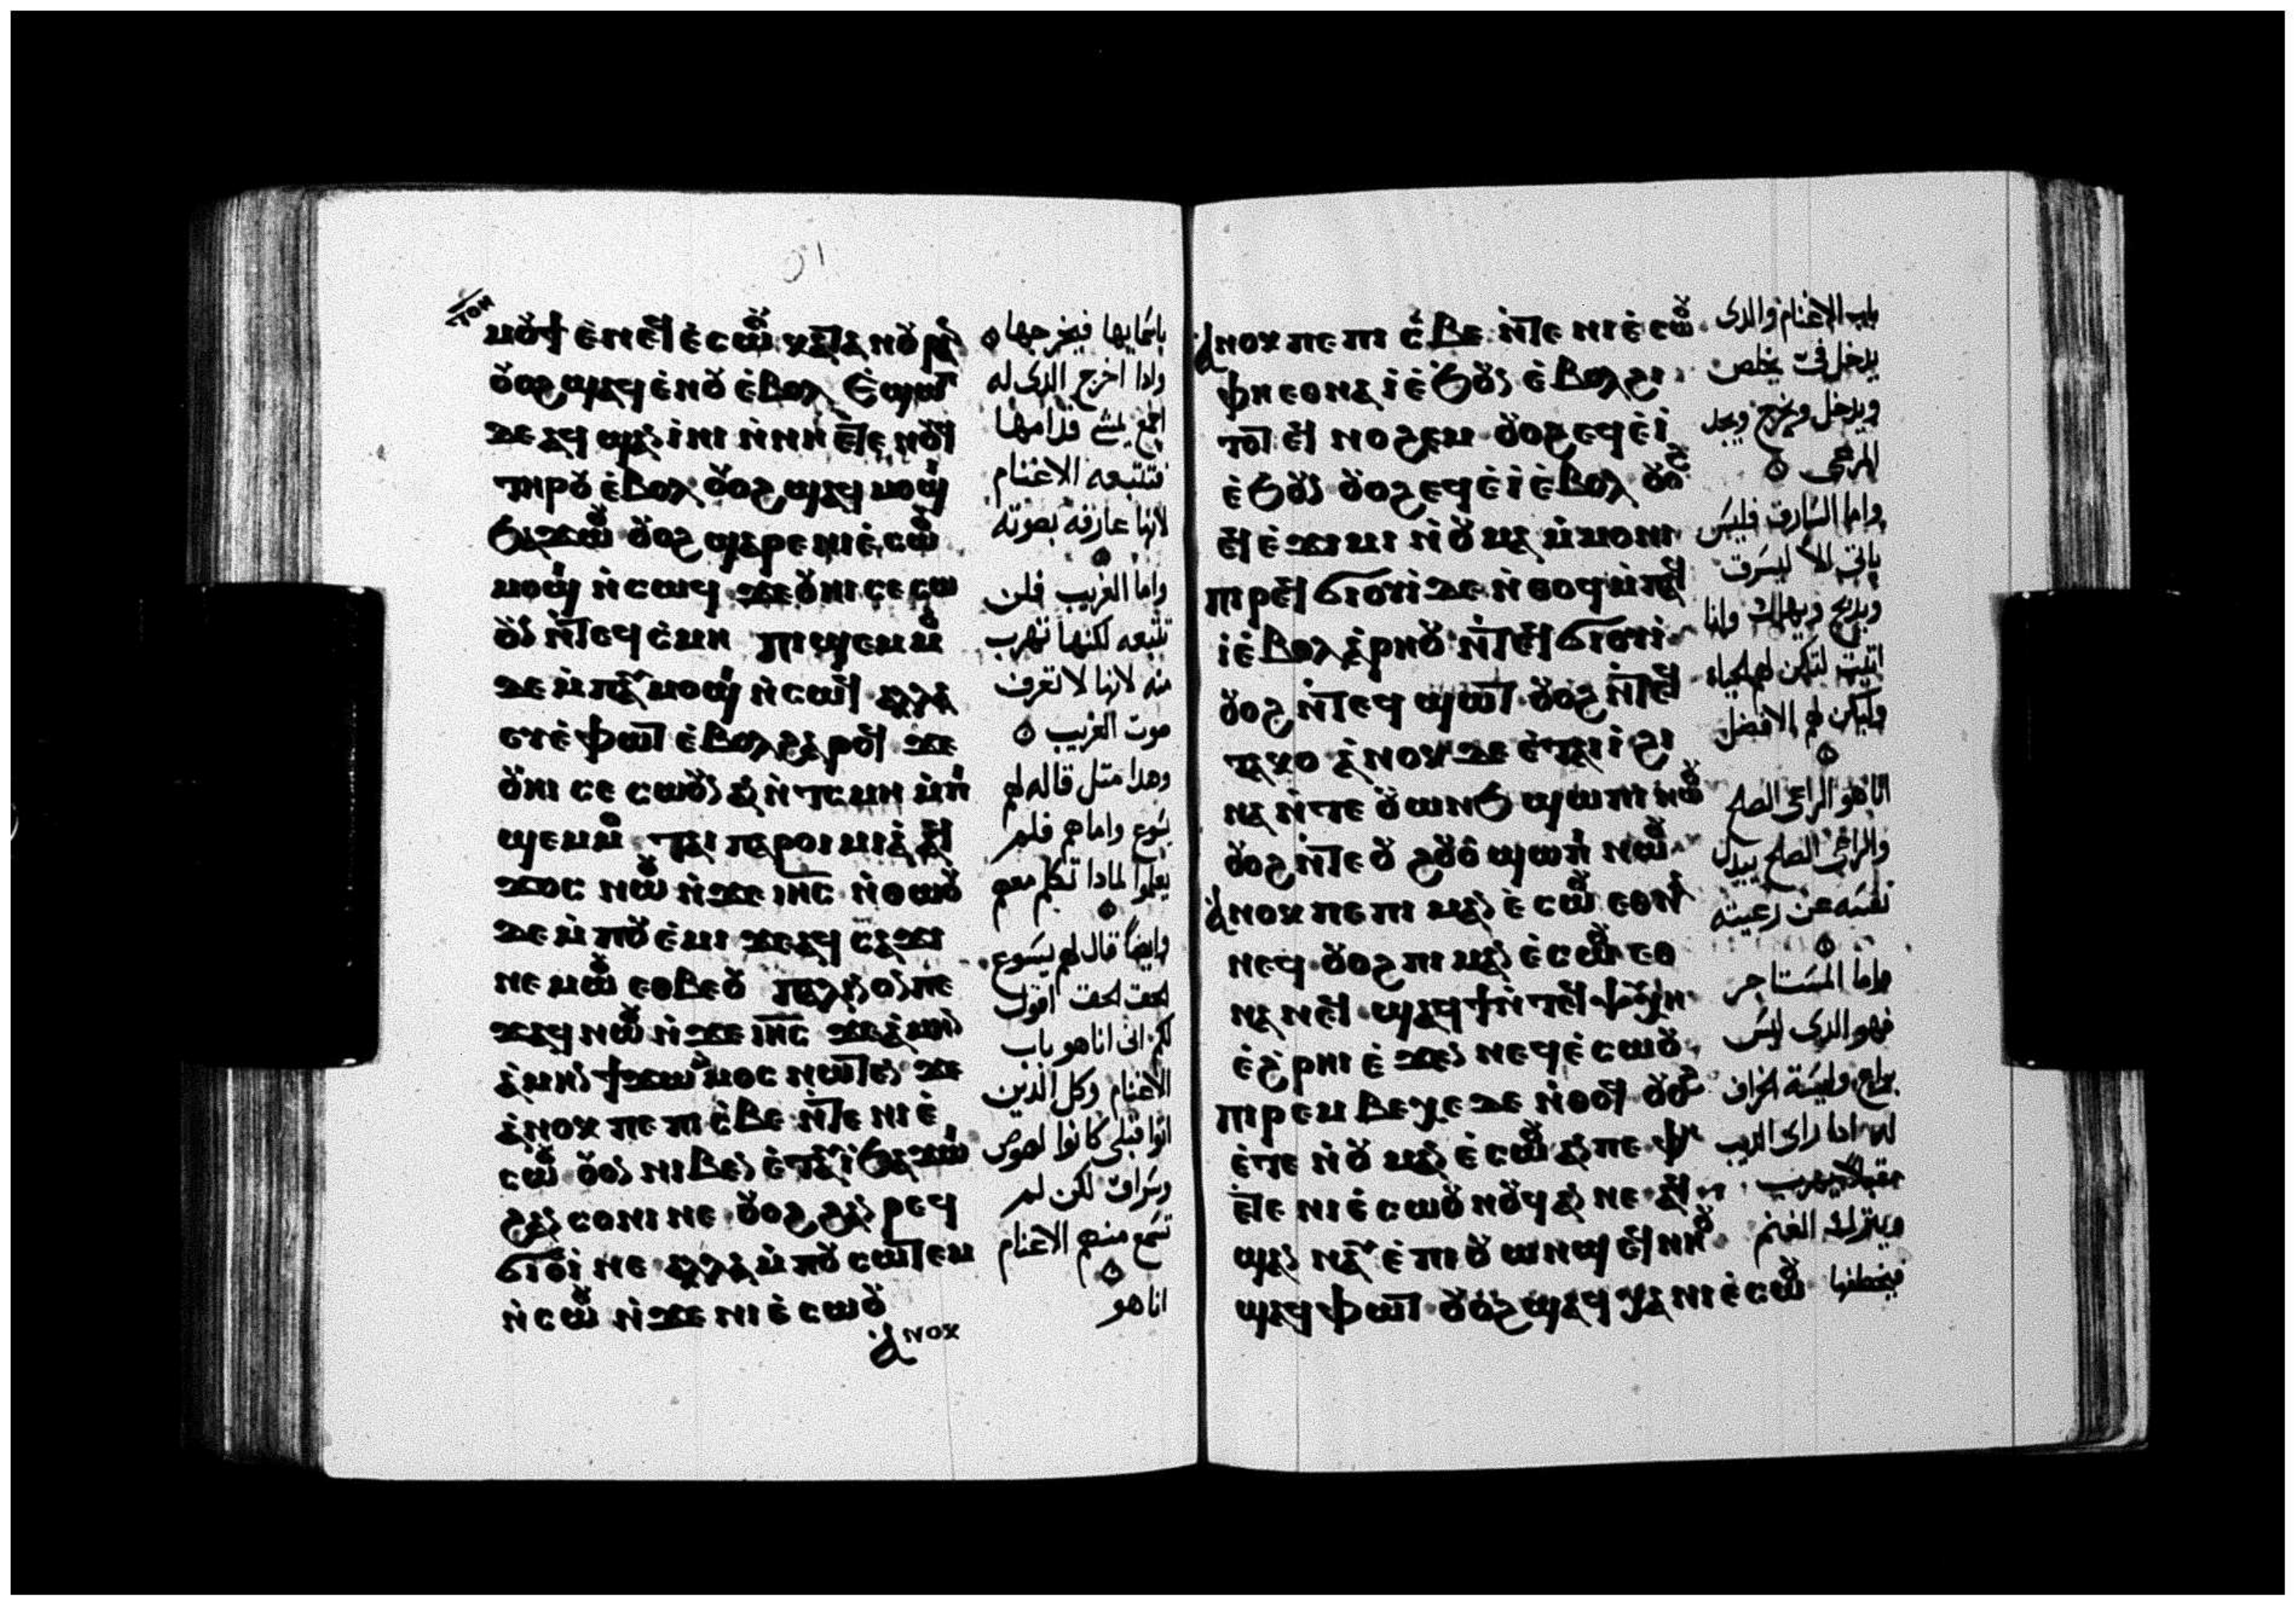 ⲙⲟⲩϯ ⲉ̀ⲛⲉϥⲉ̀ⲥⲱⲟⲩ ⲕⲁⲧⲁ ⲛⲟⲩⲣⲁⲛ
ⲟⲩⲟϩ ϣⲁϥⲉ̀ⲛⲟⲩ ⲉ̀ⲃⲟⲗ ⲉ̀ϣⲱⲡ
ⲇⲉ ⲁϥϣⲁⲛⲓ̀ⲛⲓ ⲛ̀ⲛⲏ ⲉⲧⲉ ⲛⲟⲩϥ
ⲧⲏⲣⲟⲩ ⲉ̀ⲃⲟⲗ ⲟⲩⲟϩ ϣⲁϥⲙⲟϣⲓ
ϧⲁϫⲱⲟⲩ ⲟⲩⲟϩ ϣⲁⲣⲉ ⲛⲓⲉ̀ⲥⲱⲟⲩ
ⲙⲟϣⲓ ⲛ̀ⲥⲱϥ ϫⲉ ⲟⲩⲏⲓ ⲥⲉⲥⲱ
ⲟⲩⲛ ⲛ̀ⲧⲉϥⲥ̀ⲙⲏ ⲡⲓϣⲉⲙⲙⲟ
ⲇⲉ ⲙ̀ⲡⲁⲩⲙⲟϣⲓ ⲛ̀ⲥⲱϥ ⲁⲗⲗⲁ
ⲉⲩⲉ̀ⲫⲱⲧ ⲉ̀ⲃⲟⲗ ϩⲁⲣⲟϥ ϫⲉ
ⲟⲩⲏⲓ ⲥⲉⲥⲱⲟⲩⲛ ⲁⲛ ⲛ̀ⲧⲥⲙⲏ ⲙ̀ⲡⲓ
ϣⲉⲙⲙⲟ ⲧⲁⲓ ⲡⲁⲣⲟⲓⲙⲓⲁ ⲁϥ
ϫⲟⲥ ⲛⲱⲟⲩ ⲛ̀ϫⲉ ⲓⲏⲥ ⲛ̀ⲑⲱⲟⲩ
ⲇⲉ ⲙ̀ⲡⲟⲩⲉ̀ⲙⲓ ϫⲉ ⲁϥⲥⲁϫⲓ
ⲛⲉⲙⲱⲟⲩ ⲉⲑⲃⲉ ⲟⲩ ⲡⲁⲗⲓⲛ ⲟⲛ ⲡⲉ
ϫⲁϥ ⲛⲱⲟⲩ ⲛ̀ϫⲉ ⲓⲏⲥ ϫⲉ ⲁⲙⲏⲛ
ⲁ̀ⲙⲏⲛ ϯϫⲱ ⲙ̀ⲙⲟⲥ ⲛⲱⲧⲉⲛ ϫⲉ
ⲁ̀ⲛⲟⲕ ⲡⲉ ⲡⲓⲥ̀ⲃⲉ ⲛ̀ⲧⲉ ⲛⲓⲉ̀
ⲥⲱⲟⲩ ⲟⲩⲟⲛ ⲛⲓⲃⲉⲛ ⲉ̀ⲧⲁⲩⲓ̀ ϧⲁϫⲱⲓ
ϩⲁⲛⲥⲟⲛⲓ ⲛⲉ ⲟⲩⲟϩ ϩⲁⲛⲣⲉϥ
ϭⲓⲟⲩⲓ̀ ⲛⲉ ⲁⲗⲗⲁ ⲙ̀ⲡⲟⲩⲥⲱⲧⲉⲙ
ⲛ̀ⲥⲱⲟⲩ ⲛ̀ϫⲉ ⲛⲓⲉ̀ⲥⲱⲟⲩ
ⲁ̀ⲛⲟⲕ
باسمايها فيخرجها
وادا اخرج الدى له
اجمع يمشى قدامها
فتتبعه الاغنام
لانها عارفه بصوته
واما الغريب فلن
تتبعه لكنها تهرب
منه لانها لا تعرف
صوت الغريب
وهدا متل قاله لهم
يسوع واماهم فلم
يعلموا لمادا تكلم معهم
وايضاً قال لهم يسوع
الحق الحق اقول
لكم انى انا هو باب
الاغنام وكل الذين
اتوا قبلى كانوا لصوص
وسراق لكن لم
تسمع منهم الاغنام
انا هو
ⲁ̀ⲛⲟⲕ ⲡⲉ ⲡⲓⲥ̀ⲃⲉ ⲛ̀ⲧⲉ ⲛⲓⲉ̀ⲥⲱⲟⲩ
ⲫⲏ ⲉⲑⲛⲁⲓ̀ ⲉ̀ϧⲟⲩⲛ ⲉ̀ⲃⲟⲗ ϩⲓ
ⲧⲟⲧ ⲉϥⲛⲟϩⲉⲙ ⲟⲩⲟϩ ⲉϥⲉ̀ⲓ̀
ⲉ̀ϧⲟⲩⲛ ⲟⲩⲟϩ ⲉϥⲉ̀ⲓ̀ ⲉ̀ⲃⲟⲗ ⲟⲩⲟϩ
ⲉϥⲉ̀ϫⲓⲙⲓ ⲛ̀ⲟⲩⲙⲁ ⲙ̀ⲙⲟⲛⲓ
ⲡⲓⲣⲉϥϭⲓⲟⲩⲓ̀ ⲇⲉ ⲛ̀ⲑⲟϥ ⲙ̀ⲡⲁϥ
ⲓ̀ ⲉ̀ⲃⲟⲗ ⲁ̀ⲣⲏⲟⲩ ⲛ̀ⲧⲉϥϭⲓⲟⲩⲓ̀
ⲟⲩⲟϩ ⲛ̀ⲧⲉϥϣⲱⲧ ⲟⲩⲟϩ ⲛ̀ⲧⲉϥ
ⲧⲁⲕⲟ ⲁ̀ⲛⲟⲕ ⲇⲉ ⲉ̀ⲧⲁⲓⲓ̀ ϩⲓ
ⲛⲁ ⲛ̀ⲧⲉ ⲟⲩⲱⲛϧ ϣⲱⲡⲓ ⲛⲱⲟⲩ
ⲟⲩⲟϩ ⲛ̀ⲧⲉ ⲟⲩϩⲟⲩⲟ ϣⲱⲡⲓ ⲛⲱⲟⲩ
ⲁ̀ⲛⲟⲕ ⲡⲉ ⲡⲓⲙⲁⲛⲉ̀ⲥⲱⲟⲩ ⲉⲑⲛⲁ
ⲛⲉϥ ⲟⲩⲟϩ ⲡⲓⲙⲁⲛⲉ̀ⲥⲱⲟⲩ ⲉⲑ
ⲛⲁⲛⲉϥ ϣⲁϥϯ ⲛ̀ⲧⲉϥⲯⲩⲭⲏ
ⲉ̀ϩ̀ⲣⲏⲓ ⲉ̀ϫⲉⲛ ⲛⲉϥⲉ̀ⲥⲱⲟⲩ
ⲡⲓⲣⲉⲙⲃⲉⲭⲉ ⲇⲉ ⲛ̀ⲑⲟϥ ⲟⲩⲟϩ
ⲉ̀ⲧⲉ ⲛ̀ⲟⲩⲙⲁⲛⲉ̀ⲥⲱⲟⲩ ⲁⲛ ⲡⲉ ⲫⲏ
ⲉⲧⲉ ⲛⲓⲉ̀ⲥⲱⲟⲩ ⲛⲟⲩϥ ⲁⲛ ⲛⲉ ⲁϥ
ϣⲁⲛⲛⲁⲩ ⲉ̀ⲡⲓⲟⲩⲱⲛϣ ⲉϥⲛⲏⲟⲩ
ϣⲁϥⲫⲱⲧ ⲟⲩⲟϩ ϣⲁϥⲭⲁ ⲛⲓⲉ̀ⲥⲱⲟⲩ
باب الاغنام والدى
يدخل فى يخلص
ويدخل ويخرج ويجد
المرعى
واما السارق فليس
ياتى الا ليسرق
ويدبح ويهلك وانا
اتيت لتكون لهم الحياه
وليكون لهم الافضل
انا هو الراعى الصلح
والراعى الصلح يبدل
نفسه عن رعيته
واما المستاجر
فهو الدى ليس
براع وليسة الخراف
له ادا راى الديب
مقبلاً يهرب
ويترك الغنم
فيخطفها